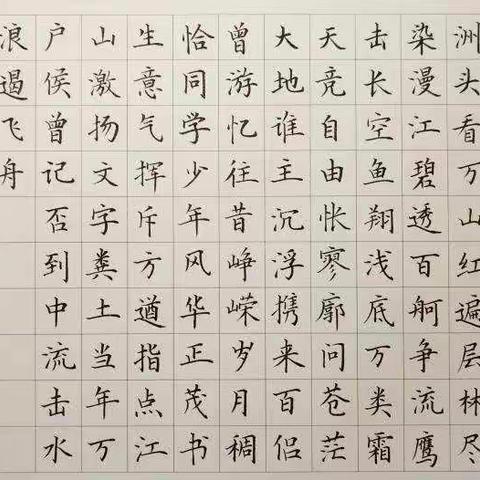 洲头看万山红遍层林尽
染漫江碧透百舸争流鹰
击长空鱼翔浅底万类霜
天竞自由怅寥廓问苍茫
大地谁主沉浮携来百侣
曾游忆往昔峥嵘岁月稠
恰同学少年风华正茂书
生意气挥斥方遒指点江
山激扬文字粪土当年万
户侯曾记否到中流击水
浪遏飞舟